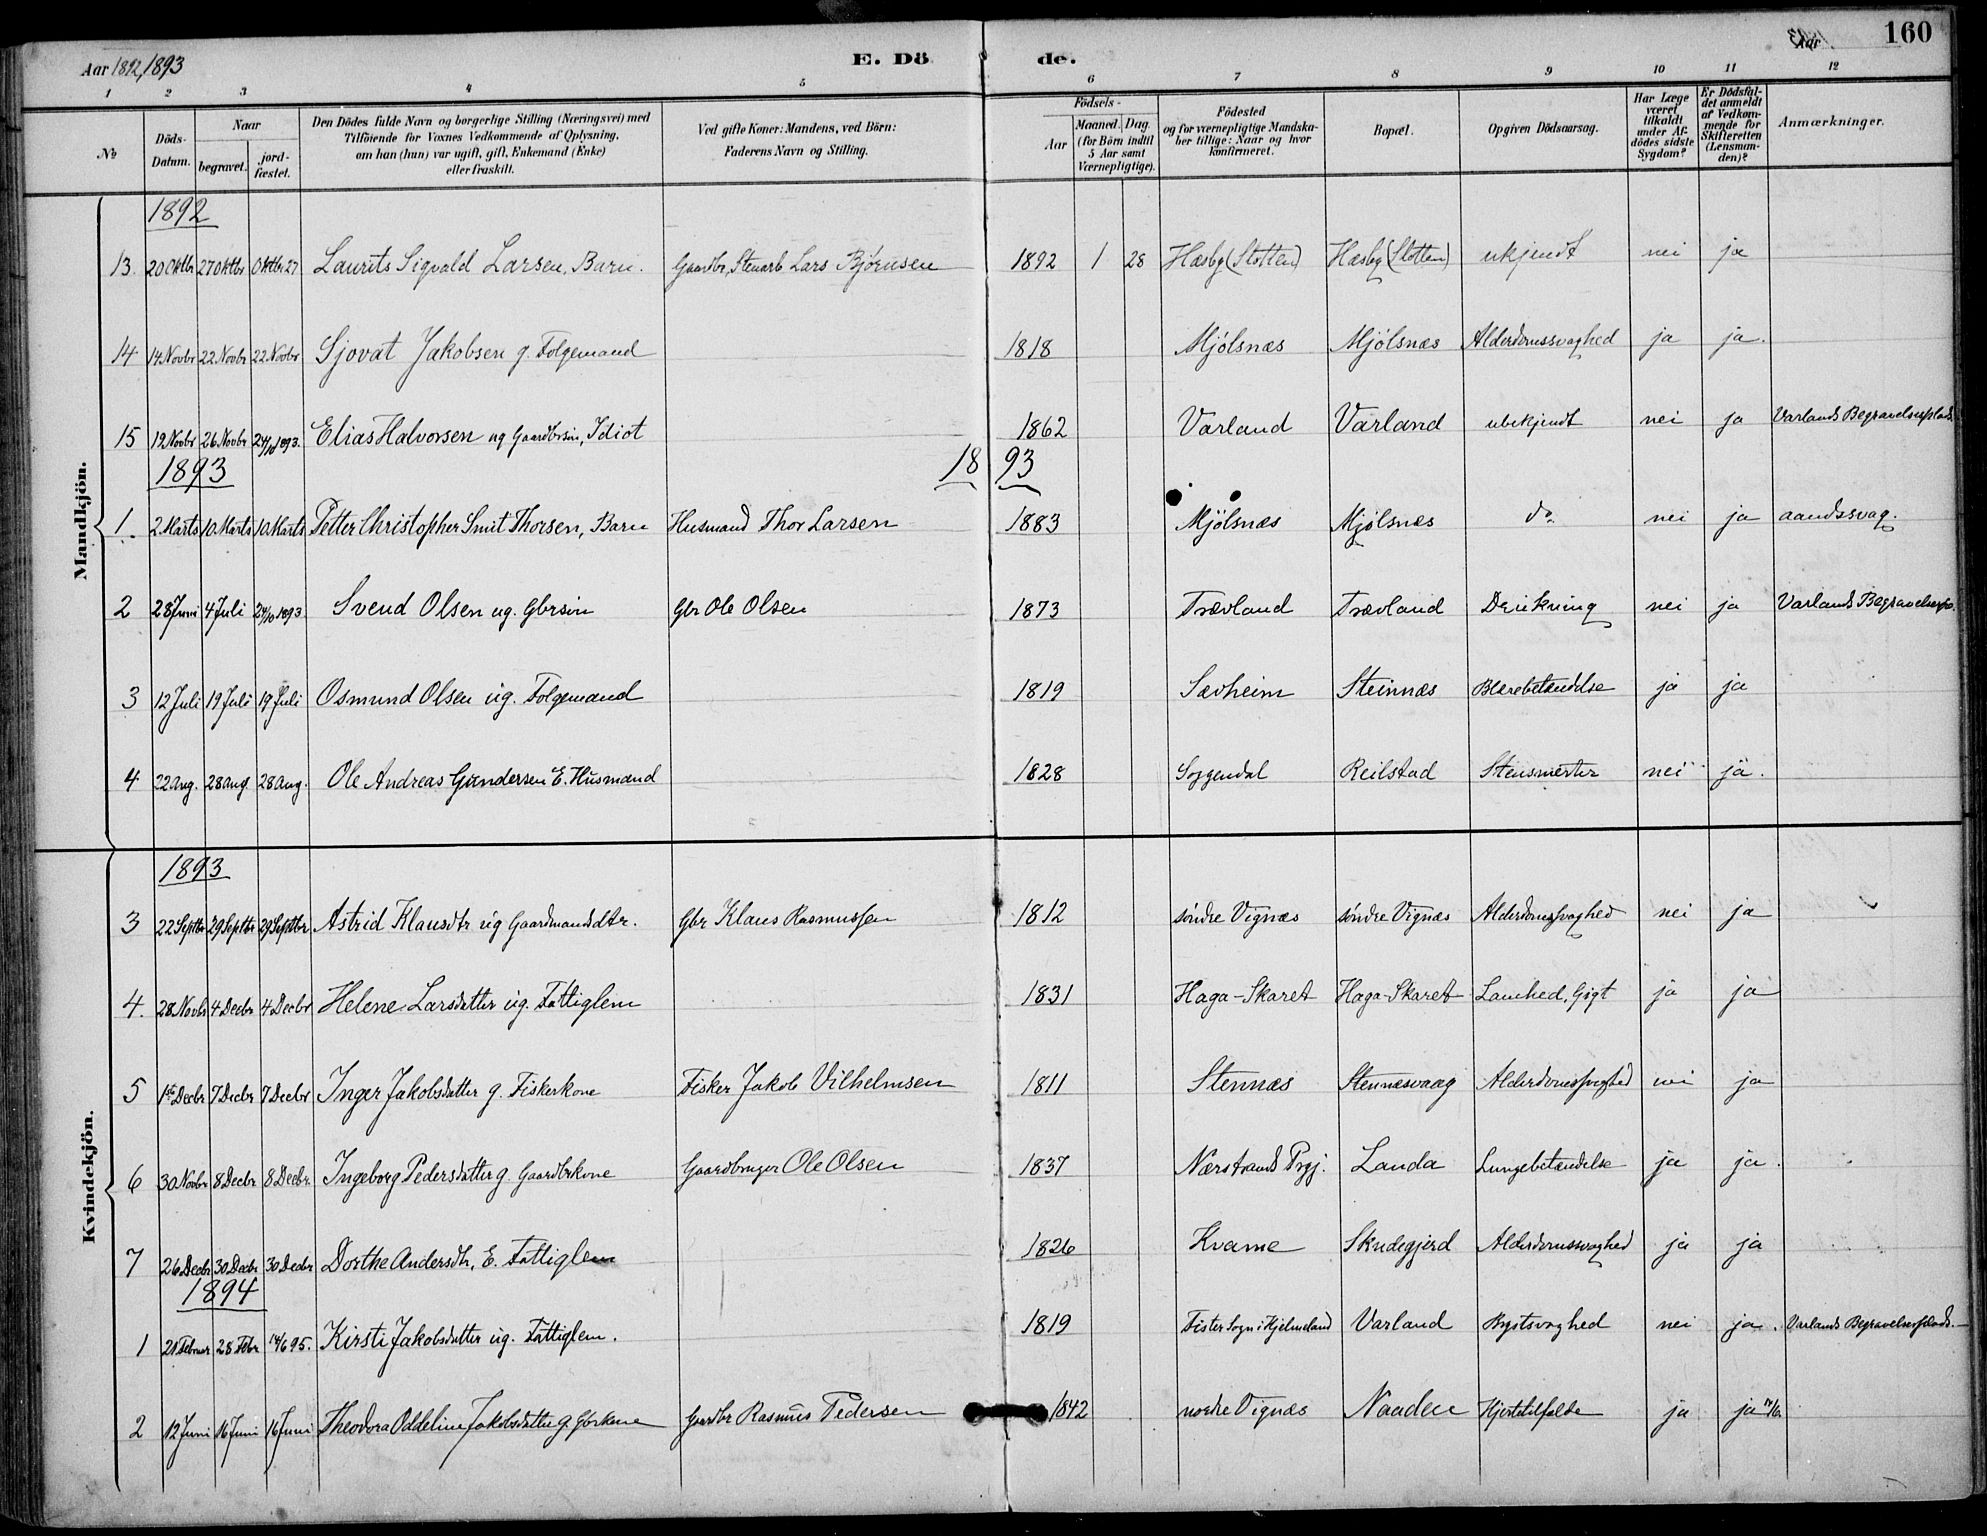 Aar 1892, 1893 E. Dö de. Aar 160
1 2 3 4 5 6 7 8 9 10 11 12
№ Döds-Datum. Naar begravet. jordfæstet. Den Dödes fulde Navn og borgerlige Stilling (Næringsvei) med Tilföiende for Voxnes Vedkommende af Oplysning, om han (hun) var ugift, gift, Enkemand (Enke) eller fraskilt. Ved gifte Koner: Mandens, ved Börn: Faderens Navn og Stilling. Födsels- Aar Maaned. Dag (for Börn indtil 5 Aar samt Værnepligtige). Födested og for værnepligtige Mandskaber tillige: Naar og hvor konfirmeret. Bopæl. Opgiven Dödsaarsag. Har Læge været tilkaldt under Afdödes sidste Sygdom? Er Dödsfaldet anmeldt af Vedkommende for Skifteretten (Lensmanden)? Anmærkninger.
Mandkjön.
1892
13. 20 Oktbr 27 Oktbr Oktbr 27 Laurits Sigvald Larsen, Barn. Gaardbr, Stenarb. Lars Bjørnsen 1892 1 28 Hæsby (Slotten) Hæsby (Slotten) ukjendt nei ja
14 14 Novbr 22 Novbr 22 Novbr Sjovat Jakobsen g. Folgemand 1818 Mjölsnæs Mjölsnæs Alderdomssvaghed ja ja.
15 19 Novbr 26 Novbr 24/10 1893. Elias Halvorsen ug Gaardbrsön, Idiot 1862 Varland Varland ubekjendt nei ja Varlands Begravelsesplads.
1893 18 93
1. 2 Marts 10 Marts 10 Marts Petter Christopher Smit Thorsen, Barn Husmand Thor Larsen 1883 Mjölsnæs Mjölsnæs do. nei ja aandssvag.
2 28 Juni 4 Juli 24/10 1893. Svend Olsen ug. Gbrsön Gbr Ole Olsen 1873 Trævland Trævland Drukning nei ja Varlands Begravelsespl.
3 12 Juli 19 Juli 19 Juli Osmund Olsen ug. Folgemand 1819 Sævheim Steinnæs Blærebetændelse ja ja
4 22 Aug. 28 Aug. 28 Aug. Ole Andreas Gundersen E. Husmand 1828 Soggendal Reilstad Stensmerter nei ja.
Kvindekjön.
1893
3 22 Septbr 29 Septbr 29 Septbr Astrid Klausdtr ug Gaardmandsdtr. Gbr Klaus Rasmussen 1812 söndre Vignæs söndre Vignæs Alderdomssvaghed nei ja
4. 28 Novbr 4 Decbr 4 Decbr Helene Larsdatter ug. Fattiglem 1831 Haga-Skaret Haga-Skaret Lamhed, Gigt ja ja
5 1ste Decbr 7 Decbr 7 Decbr Inger Jakobsdatter g. Fiskerkone Fisker Jakob Vilhelmsen 1811 Stennæs Stennæsvaag Alderdomssvaghed nei ja
6 30 Novbr 8 Decbr 8 Decbr. Ingeborg Pedersdatter g. Gaardbrkone Gaardbruger Ole Olsen 1837 Nærstrands Prgj. Landa Lungebetændelse ja ja.
7 26 Decbr 30 Decbr 30 Decbr Dorthe Andersdtr, E. Fattiglem 1826 Kvame Skudegjerd Alderdomssvaghed ja ja
1894
1 21 Februar 28 Febr 14/6 95. Kirsti Jakobsdatter ug. Fattiglem. 1819 Fister Sogn i Hjelmeland Varland Brystsvaghed nei ja. Varlands Begravelsesplads.
2 12 Juni 16 Juni 16 Juni Theodora Oddeline Jakobsdatter g. Gbrkone Gaardbr Rasmus Pedersen 1842 nordre Vignæs Naaden Hjertetilfælde ja ja